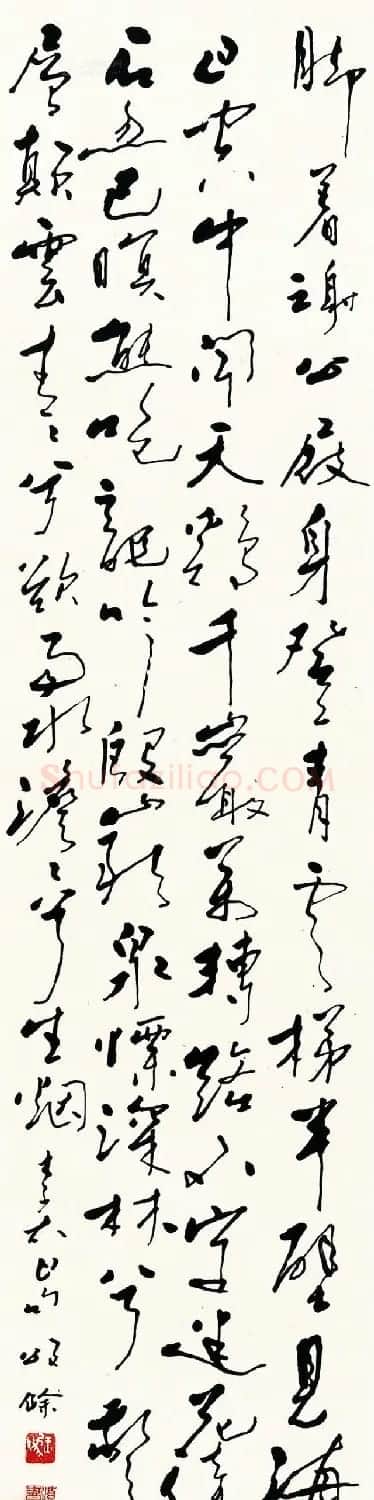 脚着謝公屐身登青雲梯半壁見海
日空中聞天鷄千巖萬轉路不定迷花倚
石忽已暝熊咆龍吟殷巖泉慄深林兮驚
層巔雲青々兮欲雨水澹々兮生烟
李太白句 頌餘
Shufaziliao.COM